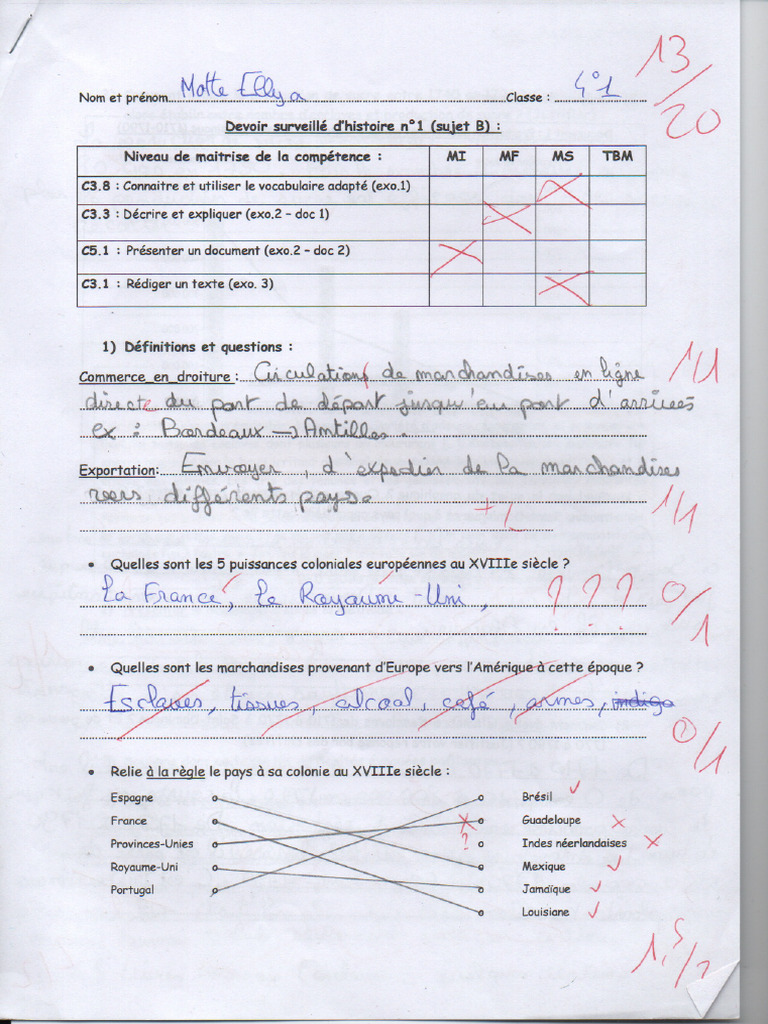 Nom et prénom Motte Ellya Classe : 4°1
13/20
Devoir surveillé d'histoire n°1 (sujet B) :
Niveau de maitrise de la compétence : MI MF MS TBM
C3.8 : Connaitre et utiliser le vocabulaire adapté (exo.1)
C3.3 : Décrire et expliquer (exo.2 – doc 1)
C5.1 : Présenter un document (exo.2 – doc 2)
C3.1 : Rédiger un texte (exo. 3)
1) Définitions et questions :
Commerce en droiture : Circulations de marchandises en ligne
1/1
directe du port de départ jusqu'au port d'arrivées
ex : Bordeaux → Antilles.
Exportation: Envoyer, d'expedier de la marchandises
vers différents pays.
1/1
• Quelles sont les 5 puissances coloniales européennes au XVIIIe siècle ?
La France, le Royaume-Uni, ? ? ? 0/1
• Quelles sont les marchandises provenant d'Europe vers l'Amérique à cette époque ?
Esclaves, tissues, alcool, café, armes, indigo
0/1
• Relie à la règle le pays à sa colonie au XVIIIe siècle :
Espagne Brésil
France Guadeloupe
Provinces-Unies ? Indes néerlandaises
Royaume-Uni Mexique
Portugal Jamaïque
Louisiane